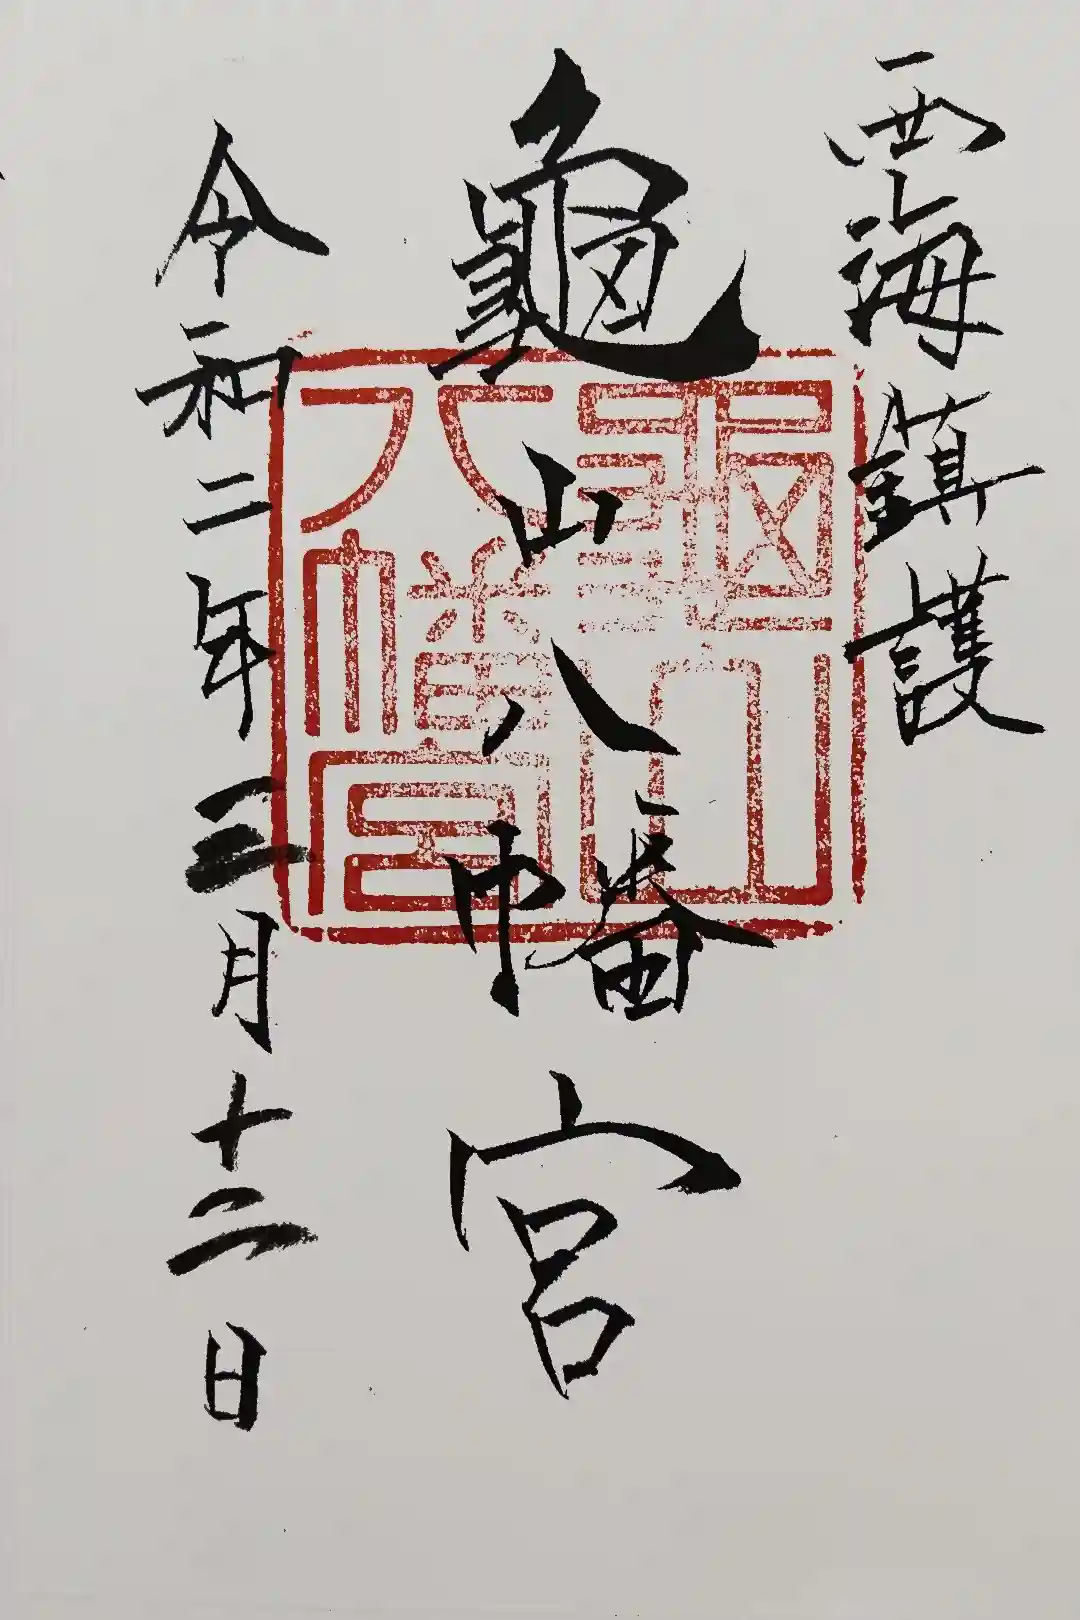 西海鎮護
龜山八幡宮
龜山八幡宮
令和二年三月十二日